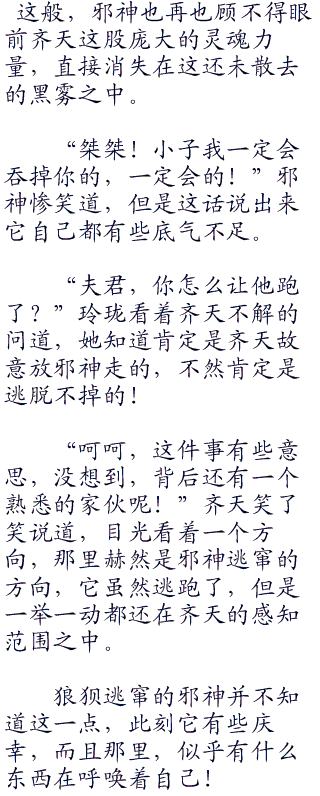 这般，邪神也再也顾不得眼
前齐天这股庞大的灵魂力
量，直接消失在这还未散去
的黑雾之中。
“桀桀！小子我一定会
吞掉你的，一定会的！”邪
神惨笑道，但是这话说出来
它自己都有些底气不足。
“夫君，你怎么让他跑
了？”玲珑看着齐天不解的
问道，她知道肯定是齐天故
意放邪神走的，不然肯定是
逃脱不掉的！
“呵呵，这件事有些意
思，没想到，背后还有一个
熟悉的家伙呢！”齐天笑了
笑说道，目光看着一个方
向，那里赫然是邪神逃窜的
方向，它虽然逃跑了，但是
一举一动都还在齐天的感知
范围之中。
狼狈逃窜的邪神并不知
道这一点，此刻它有些庆
幸，而且那里，似乎有什么
东西在呼唤着自己！